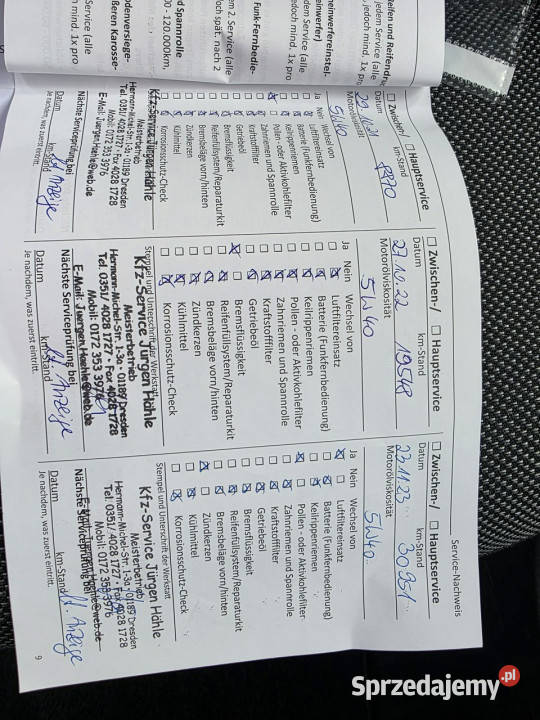 Service-Nachweis
eifen und Reifendruck
jedem Service (alle
jedoch mind. 1x pro
heinwerfereinstel-
einwerfer)
dem Service (alle
jedoch mind. 1x pro
Funk-Fernbedie-
em 2. Service (alle
och spät. nach 2
d Spannrolle
120.000km,
odenversiege-
ußeren Karosse-
Service (alle
h mind. 1x pro
☐ Zwischen-/ ☐ Hauptservice
Datum km-Stand
Motorölviskosität
5W40
Ja Nein Wechsel von
Luftfiltereinsatz
Batterie (Funkfernbedienung)
Keilrippenriemen
Pollen- oder Aktivkohlefilter
Zahnriemen und Spannrolle
Kraftstofffilter
Getriebeöl
Bremsflüssigkeit
Reifenfüllsystem/Reparaturkit
Bremsbeläge vorn/hinten
Zündkerzen
Kühlmittel
Korrosionsschutz-Check
Kfz-Service Jürgen Hähle
Meisterbetrieb
Hermann-Michel-Str. 1-3a · 01189 Dresden
Tel. 0351/ 4028 1727 · Fax 4028 1728
Mobil: 0172 353 3976
E-Mail: Juergen.Haehle@web.de
Nächste Serviceprüfung bei
lt. Anzeige
Datum km-Stand
Je nachdem, was zuerst eintritt.
☐ Zwischen-/ ☐ Hauptservice
27.10.22 19548
Datum km-Stand
Motorölviskosität
5W40
Ja Nein Wechsel von
Luftfiltereinsatz
Batterie (Funkfernbedienung)
Keilrippenriemen
Pollen- oder Aktivkohlefilter
Zahnriemen und Spannrolle
Kraftstofffilter
Getriebeöl
Bremsflüssigkeit
Reifenfüllsystem/Reparaturkit
Bremsbeläge vorn/hinten
Zündkerzen
Kühlmittel
Korrosionsschutz-Check
Stempel und Unterschrift der Werkstatt
Kfz-Service Jürgen Hähle
Meisterbetrieb
Hermann-Michel-Str. 1-3a · 01189 Dresden
Tel. 0351/ 4028 1727 · Fax 4028 1728
Mobil: 0172 353 3976
E-Mail: Juergen.Haehle@web.de
Nächste Serviceprüfung bei
lt. Anzeige
Datum km-Stand
Je nachdem, was zuerst eintritt.
☐ Zwischen-/ ☐ Hauptservice
23.11.23 30351
Datum km-Stand
Motorölviskosität
5W40
Ja Nein Wechsel von
Luftfiltereinsatz
Batterie (Funkfernbedienung)
Keilrippenriemen
Pollen- oder Aktivkohlefilter
Zahnriemen und Spannrolle
Kraftstofffilter
Getriebeöl
Bremsflüssigkeit
Reifenfüllsystem/Reparaturkit
Bremsbeläge vorn/hinten
Zündkerzen
Kühlmittel
Korrosionsschutz-Check
Stempel und Unterschrift der Werkstatt
Kfz-Service Jürgen Hähle
Meisterbetrieb
Hermann-Michel-Str. 1-3a · 01189 Dresden
Tel. 0351/ 4028 1727 · Fax 4028 1728
Mobil: 0172 353 3976
E-Mail: Juergen.Haehle@web.de
Nächste Serviceprüfung bei
lt. Anzeige
Datum km-Stand
Je nachdem, was zuerst eintritt.
9
Sprzedajemy.pl